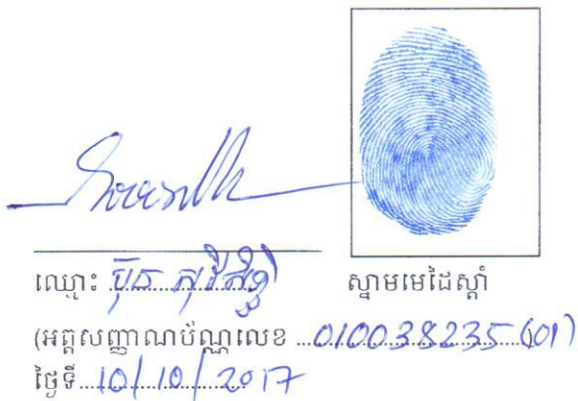 ឈ្មោះ ប៊ុន
ស្នាមមេដៃស្តាំ
(អត្តសញ្ញាណប័ណ្ណលេខ 010038235 (01)
ថ្ងៃទី 10/10/2017